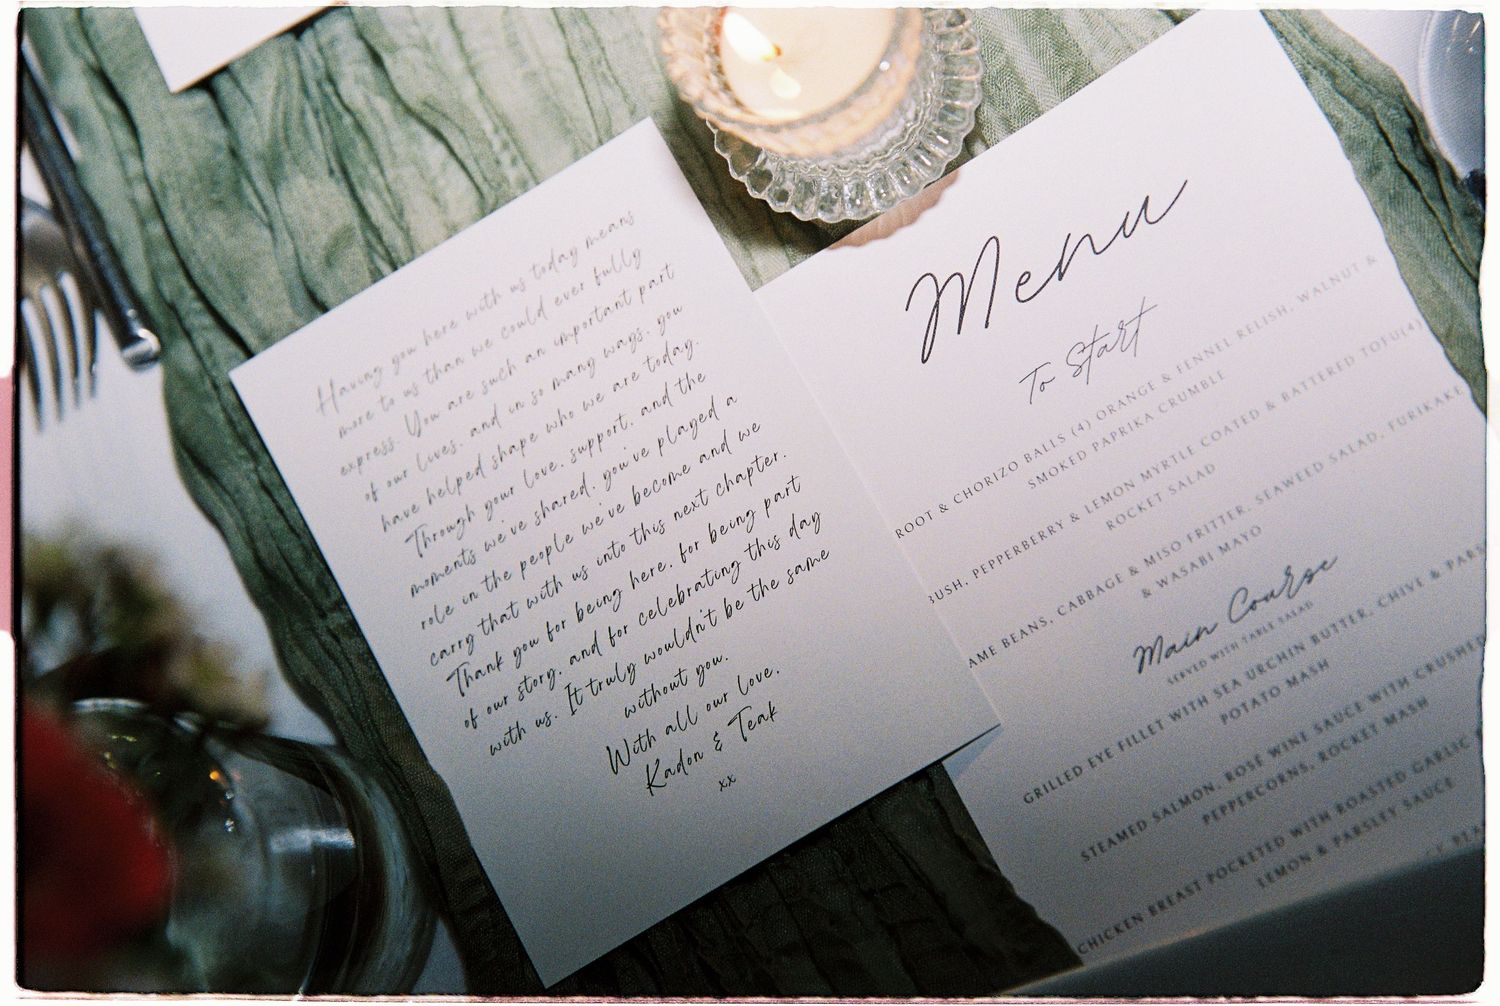 Having you here with us today means
more to us than we could ever fully
express. You are such an important part
of our lives, and in so many ways, you
have helped shape who we are today.
Through your love, support, and the
moments we've shared, you've played a
role in the people we've become and we
carry that with us into this next chapter.
Thank you for being here, for being part
of our story, and for celebrating this day
with us. It truly wouldn't be the same
without you.
With all our love,
Kadon & Teak
xx
Menu
To Start
ROOT & CHORIZO BALLS (4) ORANGE & FENNEL RELISH, WALNUT &
SMOKED PAPRIKA CRUMBLE
BUSH, PEPPERBERRY & LEMON MYRTLE COATED & BATTERED TOFU(4)
ROCKET SALAD
AME BEANS, CABBAGE & MISO FRITTER, SEAWEED SALAD, FURIKAKE
& WASABI MAYO
Main Course
SERVED WITH TABLE SALAD
GRILLED EYE FILLET WITH SEA URCHIN BUTTER, CHIVE & PARS
POTATO MASH
STEAMED SALMON, ROSÉ WINE SAUCE WITH CRUSHED
PEPPERCORNS, ROCKET MASH
CHICKEN BREAST POCKETED WITH ROASTED GARLIC
LEMON & PARSLEY SAUCE